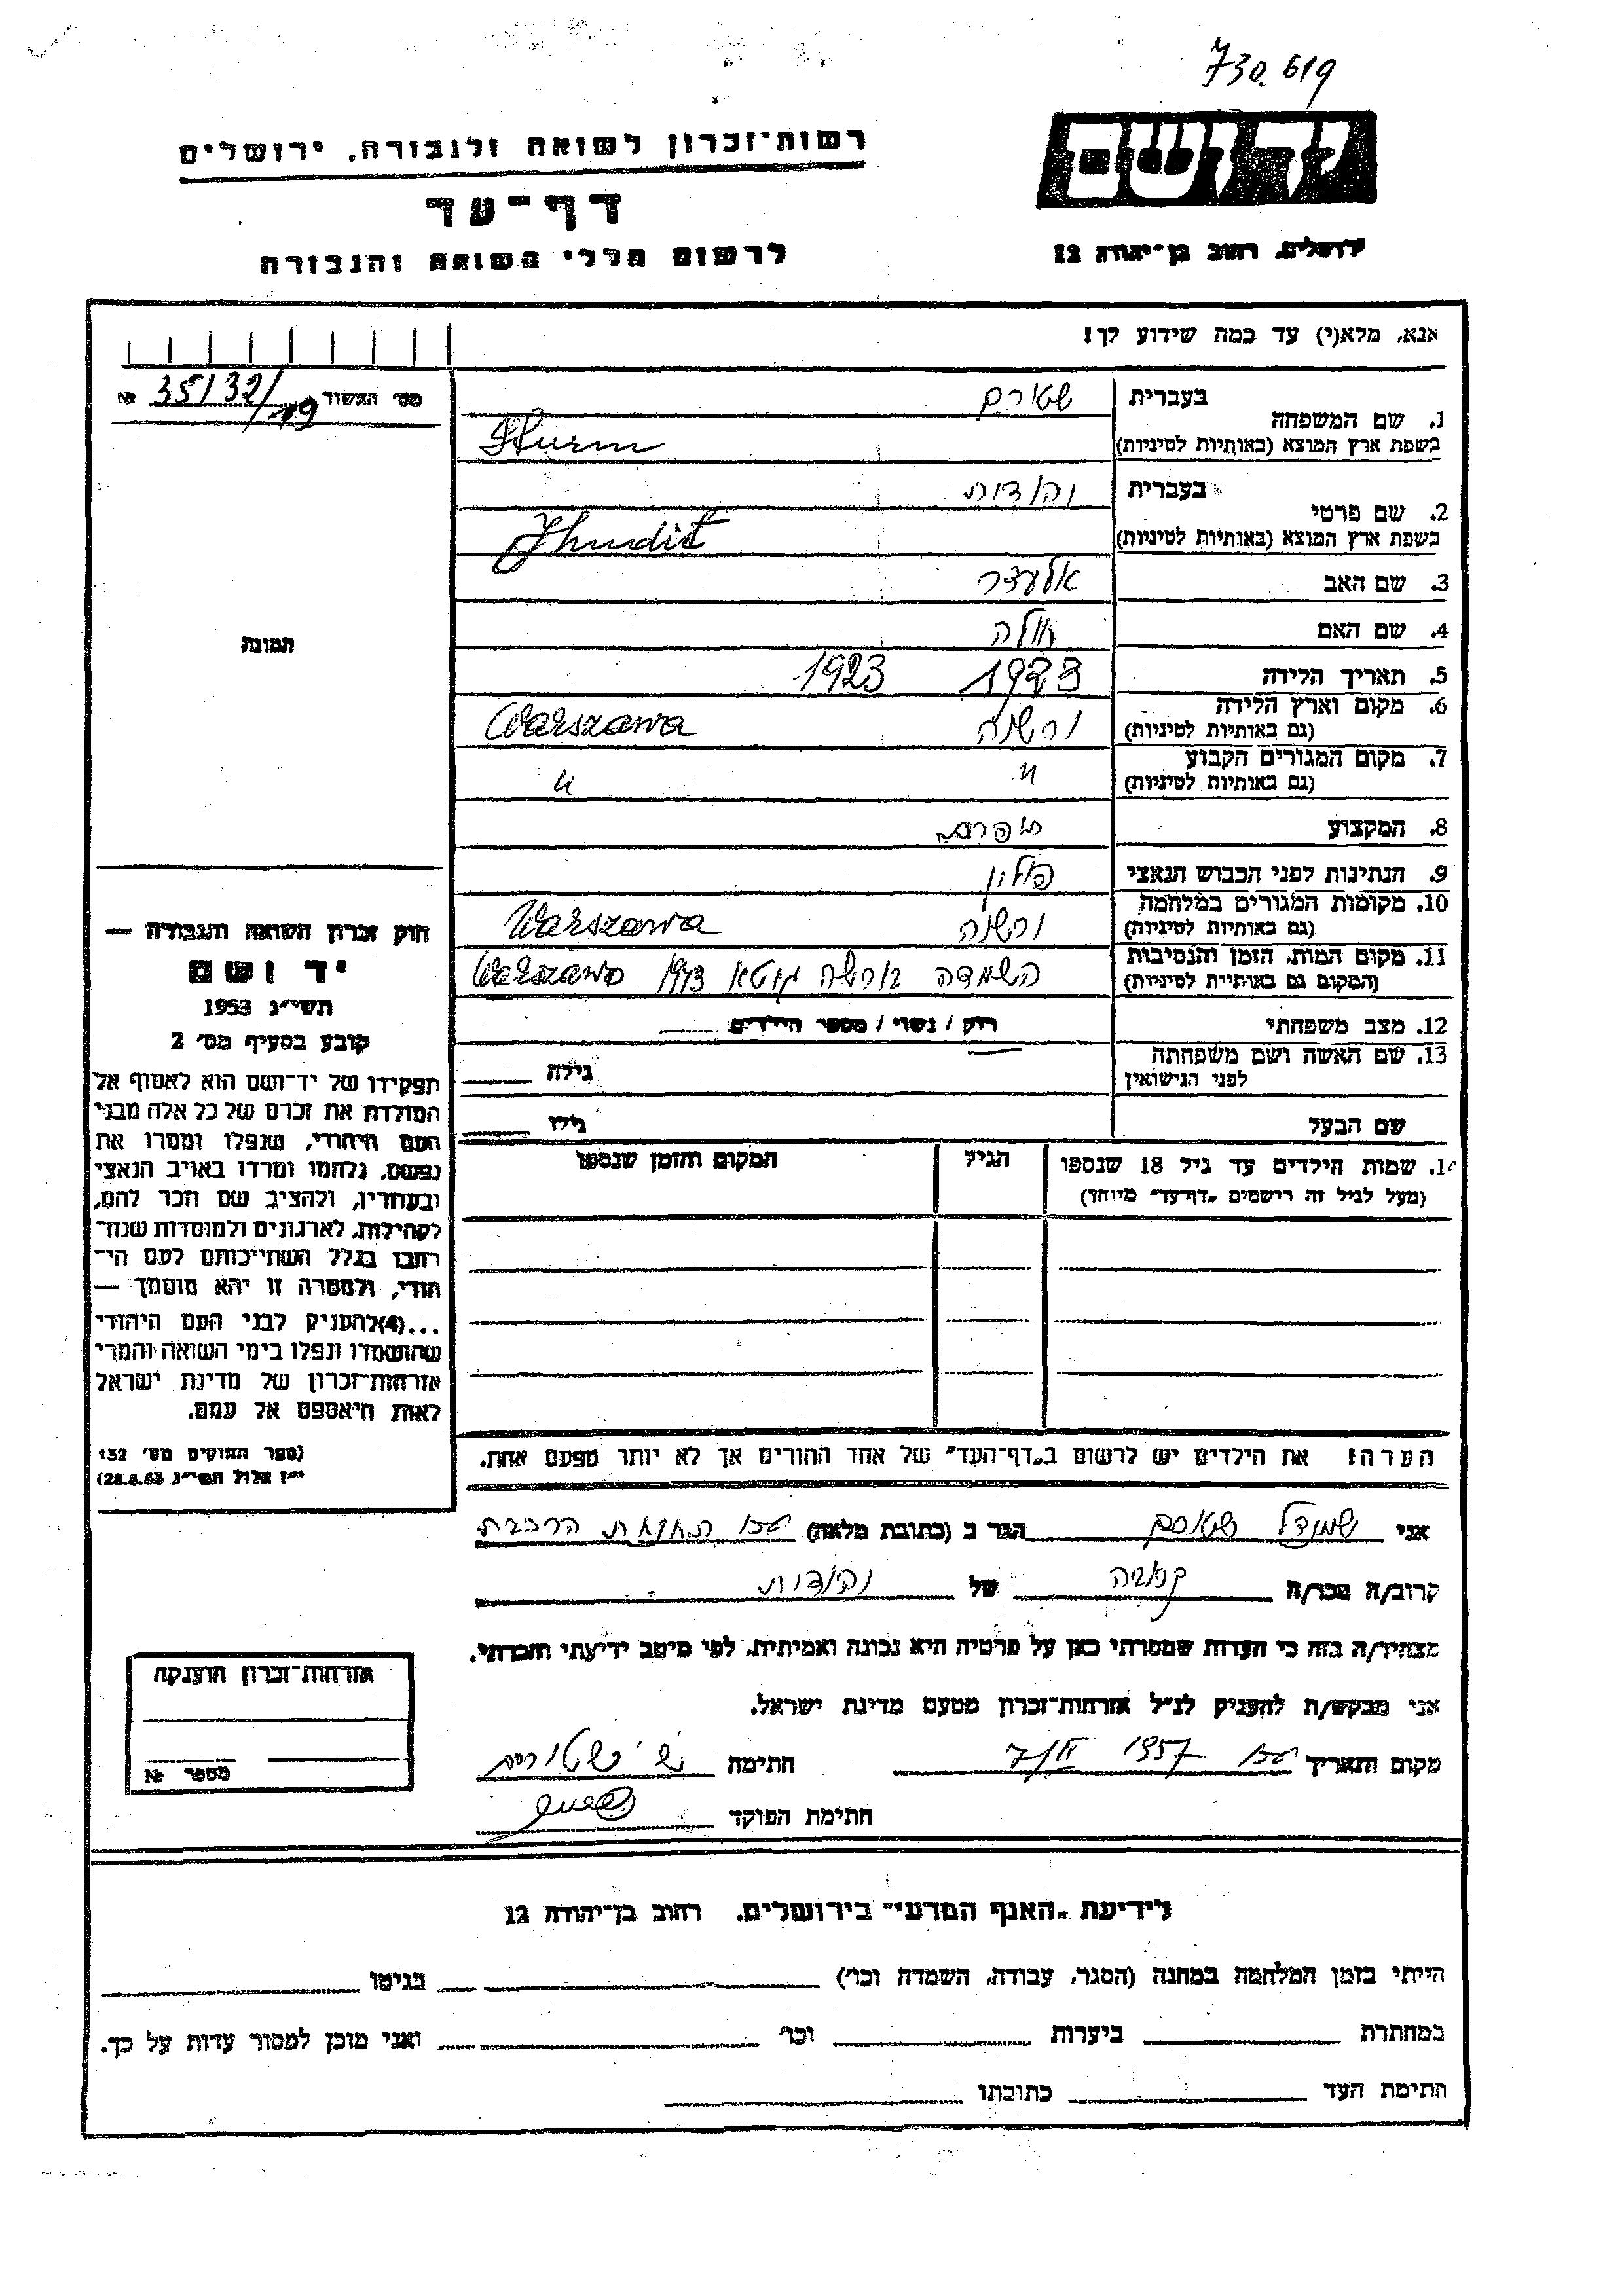 730.619
רשות־זכרון לשואה ולגבורה, ירושלים
ידושם
דף־עד
לרשום חללי השואה והגבורה
ירושלים, רחוב בן־יהודה 12
אנא, מלא(י) עד כמה שידוע לך!
מס׳ המשור 35132/19 №
1. שם המשפחה
בעברית שטורם
בשפת ארץ המוצא (באותיות לטיניות) Sturm
2. שם פרטי
בעברית יהודית
בשפת ארץ המוצא (באותיות לטיניות) Jhudit
3. שם האב אלעזר
4. שם האם
5. תאריך הלידה 1923 1923
6. מקום וארץ הלידה
(גם באותיות לטיניות) ורשה Warszawa
7. מקום המגורים הקבוע
(גם באותיות לטיניות) " "
8. המקצוע תופרת
9. הנתינות לפני הכבוש הנאצי פולין
10. מקומות המגורים במלחמה
(גם באותיות לטיניות) ורשה Warszawa
11. מקום המות, הזמן והנסיבות
(המקום גם באותיית לטיניות) השמדה בורשה גוטא 1943 Warszawa
12. מצב משפחתי רוק / נשוי / מספר הילדים
13. שם האשה ושם משפחתה
לפני הנישואין גילה
שם הבעל גילו
14. שמות הילדים עד גיל 18 שנספו הגיל המקום והזמן שנספו
(מעל לגיל זה רישמים „דף־עד״ מיוחד)
תמונה
חוק זכרון השואה והגבורה —
יד ושם
תשי״ג 1953
קובע בסעיף מס׳ 2
תפקידו של יד־ושם הוא לאסוף אל
המולדת את זכרם של כל אלה מבני
העם היהודי, שנפלו ומסרו את
נפשם, נלחמו ומרדו באויב הנאצי
ובעוזריו, ולהציב שם וזכר להם,
לקהילות, לארגונים ולמוסדות שנח־
רבו בגלל השתייכותם לעם הי־
הודי, ולמטרה זו יהא מוסמך —
...(4)להעניק לבני העם היהודי
שהושמדו ונפלו בימי השואה והמרי
אזרחות־זכרון של מדינת ישראל
לאות היאספם אל עמם.
(ספר החוקים מס׳ 132
י״ז אלול תשי״ג 28.8.53)
הערה: את הילדים יש לרשום ב„דף־העד״ של אחד ההורים אך לא יותר מפעם אחת.
אני שטורם הגר ב (כתובת מלאה) תחנת הרכבת
קרוב/ה מכר/ה קרובה של יהודית
מצהיר/ה בזה כי העדות שמסרתי כאן על פרטיה היא נכונה ואמיתית, לפי מיטב ידיעתי והכרתי.
אני מבקש/ת להעניק לנ״ל אזרחות־זכרון מטעם מדינת ישראל.
מקום ותאריך 7/II 1957 חתימה ש׳ שטורם
חתימת הפוקד
אזרחות־זכרון הוענקה
מספר №
לידיעת „האגף המדעי״ בירושלים, רחוב בן־יהודה 12
הייתי בזמן המלחמה במחנה (הסגר, עבודה, השמדה וכו׳) בגיטו
במחתרת ביערות וכו׳ ואני מוכן למסור עדות על כך.
חתימת העד כתובתו